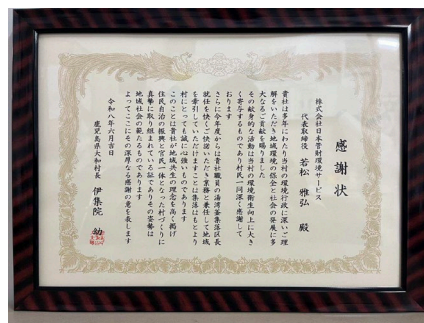 感謝状
株式会社日本管財環境サービス
代表取締役 若松 雅弘 殿
貴社は多年にわたり当村の環境行政に深いご理
解をいただき地域環境の保全と社会の発展に多
大なるご貢献を賜りました
その献身的な活動は当村の環境衛生向上に大き
く寄与するものであり村民一同深く感謝して
おります
さらに今年度からは貴社職員の湯湾釜集落区長
就任を快くご快諾いただき業務と兼任して地域
を牽引していただけますことは集落はもとより
村にとっても誠に心強いものであります
このことは貴社が地域共生の理念を高く掲げ
住民自治の振興と官民一体となった村づくりに
真摯に取り組まれている証でありその姿勢は
地域社会の範たるものであります
よってここにその深厚なる感謝の意を表します
令和八年六月吉日
鹿児島県大和村長 伊集院 幼